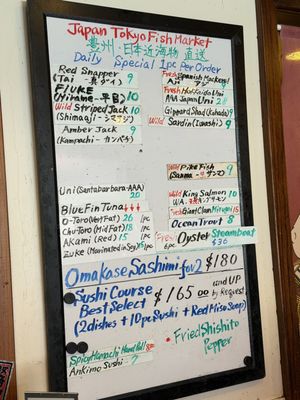 Japan Tokyo Fish Market
豊州・日本近海物 直送
Daily Special 1pc Per Order
Red Snapper
(Tai - 真ダイ) 9
FLUKE
(Hirame-平目) 10
Wild Striped Jack 10
(Shimaaji-シマアジ)
Amber Jack 9
(Kampachi-カンパチ)
Fresh Spanish Mackerel
Aji 9
Fresh Hokkaido Uni
AAA Japan Uni
Gizzard Shad (Kohada) 9
Wild Sardin (Iwashi) 9
Wild Pike Fish 9
(Sanma-サンマ)
Uni (Santa barbara-AAA)
20
BlueFin Tuna
O-Toro (Very Fat) 26 1pc
Chu-Toro (Mid Fat) 18 1pc
AKami (Red) 15 1pc
Zuke (Marinated in Soy) 15 1pc
Wild King Salmon 10
Fresh Giant Clam Mirugai 15
Ocean Trout 8
Fresh Oyster Steamboat
6pc $36
Omakase Sashimi for 2 $180
Sushi Course
Best Select $165.00 and UP
by Request
(2dishes + 10pc Sushi + Red Miso Soup)
Fried Shishito
Pepper
Spicy Hamachi Hand Roll
Ankimo Sushi 7